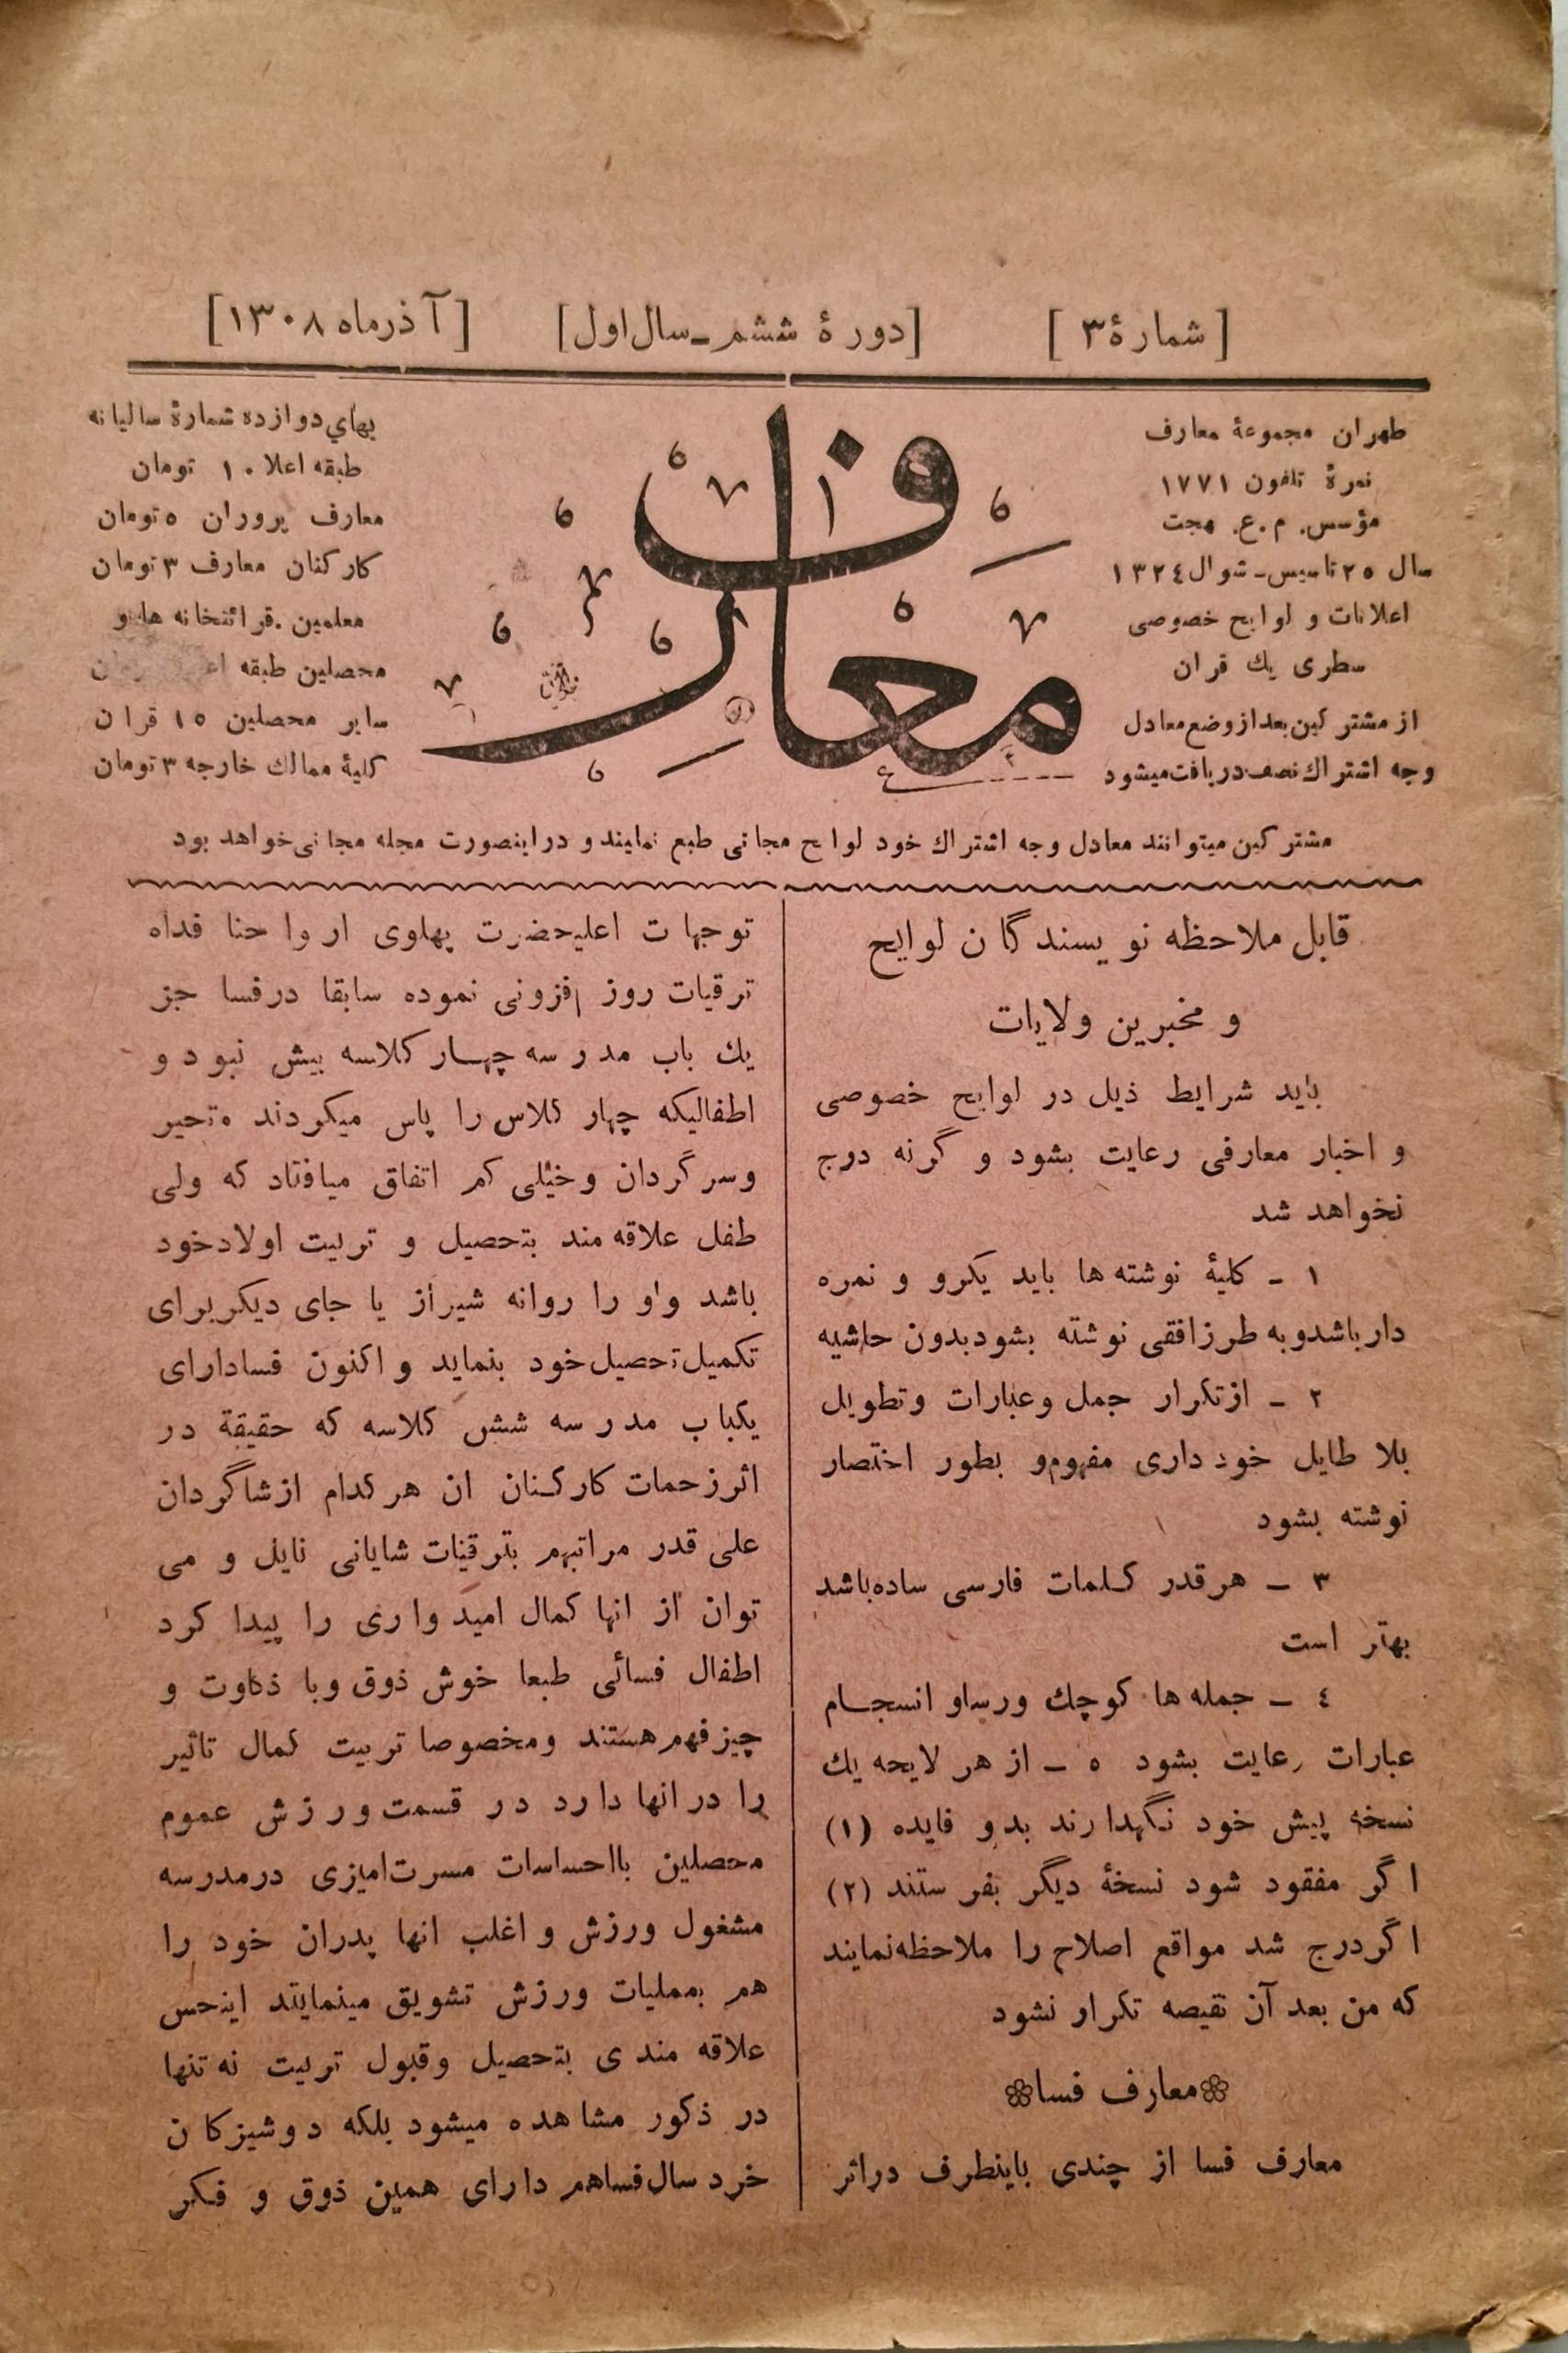 [شمارهٔ ۳ ]
[دورهٔ ششم ــ سال اول]
[ آذرماه ۱۳۰۸]
طهران مجموعهٔ معارف
نمرهٔ تلفون ۱۷۷۱
مؤسس. م . ع . بهجت
سال ۲۵ تاسیس ـ شوال ۱۳۲٤
اعلانات و لوایح خصوصی
سطری یك قران
از مشتر کین بعد از وضع معادل
وجه اشتراك نصف دریافت میشود
معارف
بهاي دوازده شمارهٔ سالیانه
طبقه اعلا ۱۰ تومان
معارف پروران ۵ تومان
کارکنان معارف ۳ تومان
معلمین . قرائتخانه ها و
محصلین طبقه
سایر محصلین ۱۵ قران
کلیهٔ ممالك خارجه ۳ تومان
مشتر کین میتوانند معادل وجه اشتراك خود لوایح مجانی طبع نمایند و دراینصورت مجله مجانی خواهد بود
قابل ملاحظه نویسندگان لوایح
و مخبرین ولایات
باید شرایط ذیل در لوایح خصوصی
و اخبار معارفی رعایت بشود و گرنه درج
نخواهد شد
۱ ـ کلیهٔ نوشته ها باید یکرو و نمره
دار باشد و به طرز افقی نوشته بشود بدون حاشیه
۲ ـ از تکرار جمل و عبارات و تطویل
بلا طایل خود داری مفهوم و بطور اختصار
نوشته بشود
۳ ــ هر قدر کـلمات فارسی ساده باشد
بهتر است
٤ ــ جمله ها کوچك و رسا و انسجـام
عبارات رعایت بشود ۵ ــ از هر لایحه یك
نسخه پیش خود نگهدارند بدو فایده (۱)
اگر مفقود شود نسخهٔ دیگر بفرستند (۲)
اگر درج شد مواقع اصلاح را ملاحظه نمایند
که من بعد آن نقیصه تکرار نشود
❀معارف فسا❀
معارف فسا از چندی باینطرف در اثر
توجهات اعلیحضرت پهلوی ارواحنا فداه
ترقیات روز افزونی نموده سابقا در فسا جز
یك باب مدرسه چهـار کلاسه بیش نبود و
اطفالیکه چهار کلاس را پاس میکردند متحیر
و سرگردان و خیلی کم اتفاق میافتاد که ولی
طفل علاقه مند بتحصیل و تربیت اولاد خود
باشد و او را روانه شیراز یا جای دیکر برای
تکمیل تحصیل خود بنماید و اکنون فسا دارای
یکباب مدرسه شش کلاسه که حقیقة در
اثر زحمات کارکـنان ان هر کدام از شاگردان
علی قدر مراتبهم بترقیات شایانی نایل و می
توان از انها کمال امیدواری را پیدا کرد
اطفال فسائی طبعا خوش ذوق و با ذکاوت و
چیز فهم هستند و مخصوصا تربیت کمال تاثیر
را در انها دارد در قسمت ورزش عموم
محصلین با احساسات مسرت امیزی در مدرسه
مشغول ورزش و اغلب انها پدران خود را
هم بعملیات ورزش تشویق مینمایند اینحس
علاقه مندی بتحصیل و قبول تربیت نه تنها
در ذکور مشاهده میشود بلکه دوشیزکان
خرد سال فسا هم دارای همین ذوق و فکر